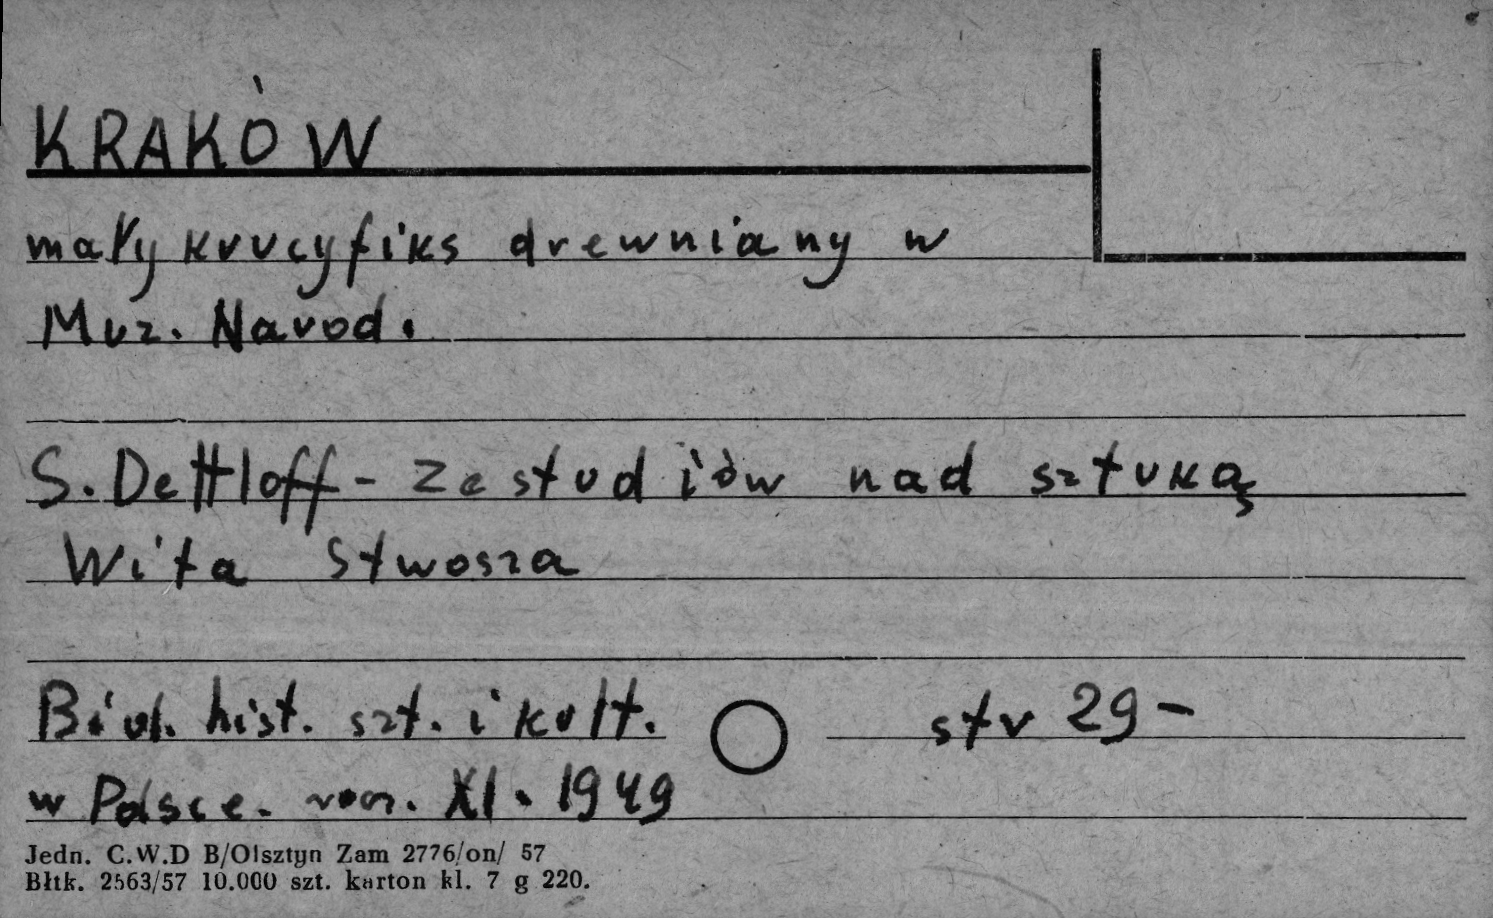 KRAKÓW
mały krucyfiks drewniany w
Muz. Narod.
S. Dettloff - Ze studiów nad sztuką
Wita Stwosza
Biul. hist. szt. i kult. str 29 -
w Polsce. rocz. XI. 1949
Jedn. C.W.D B/Olsztyn Zam 2776/on/ 57
Błtk. 2563/57 10.000 szt. karton kl. 7 g 220.